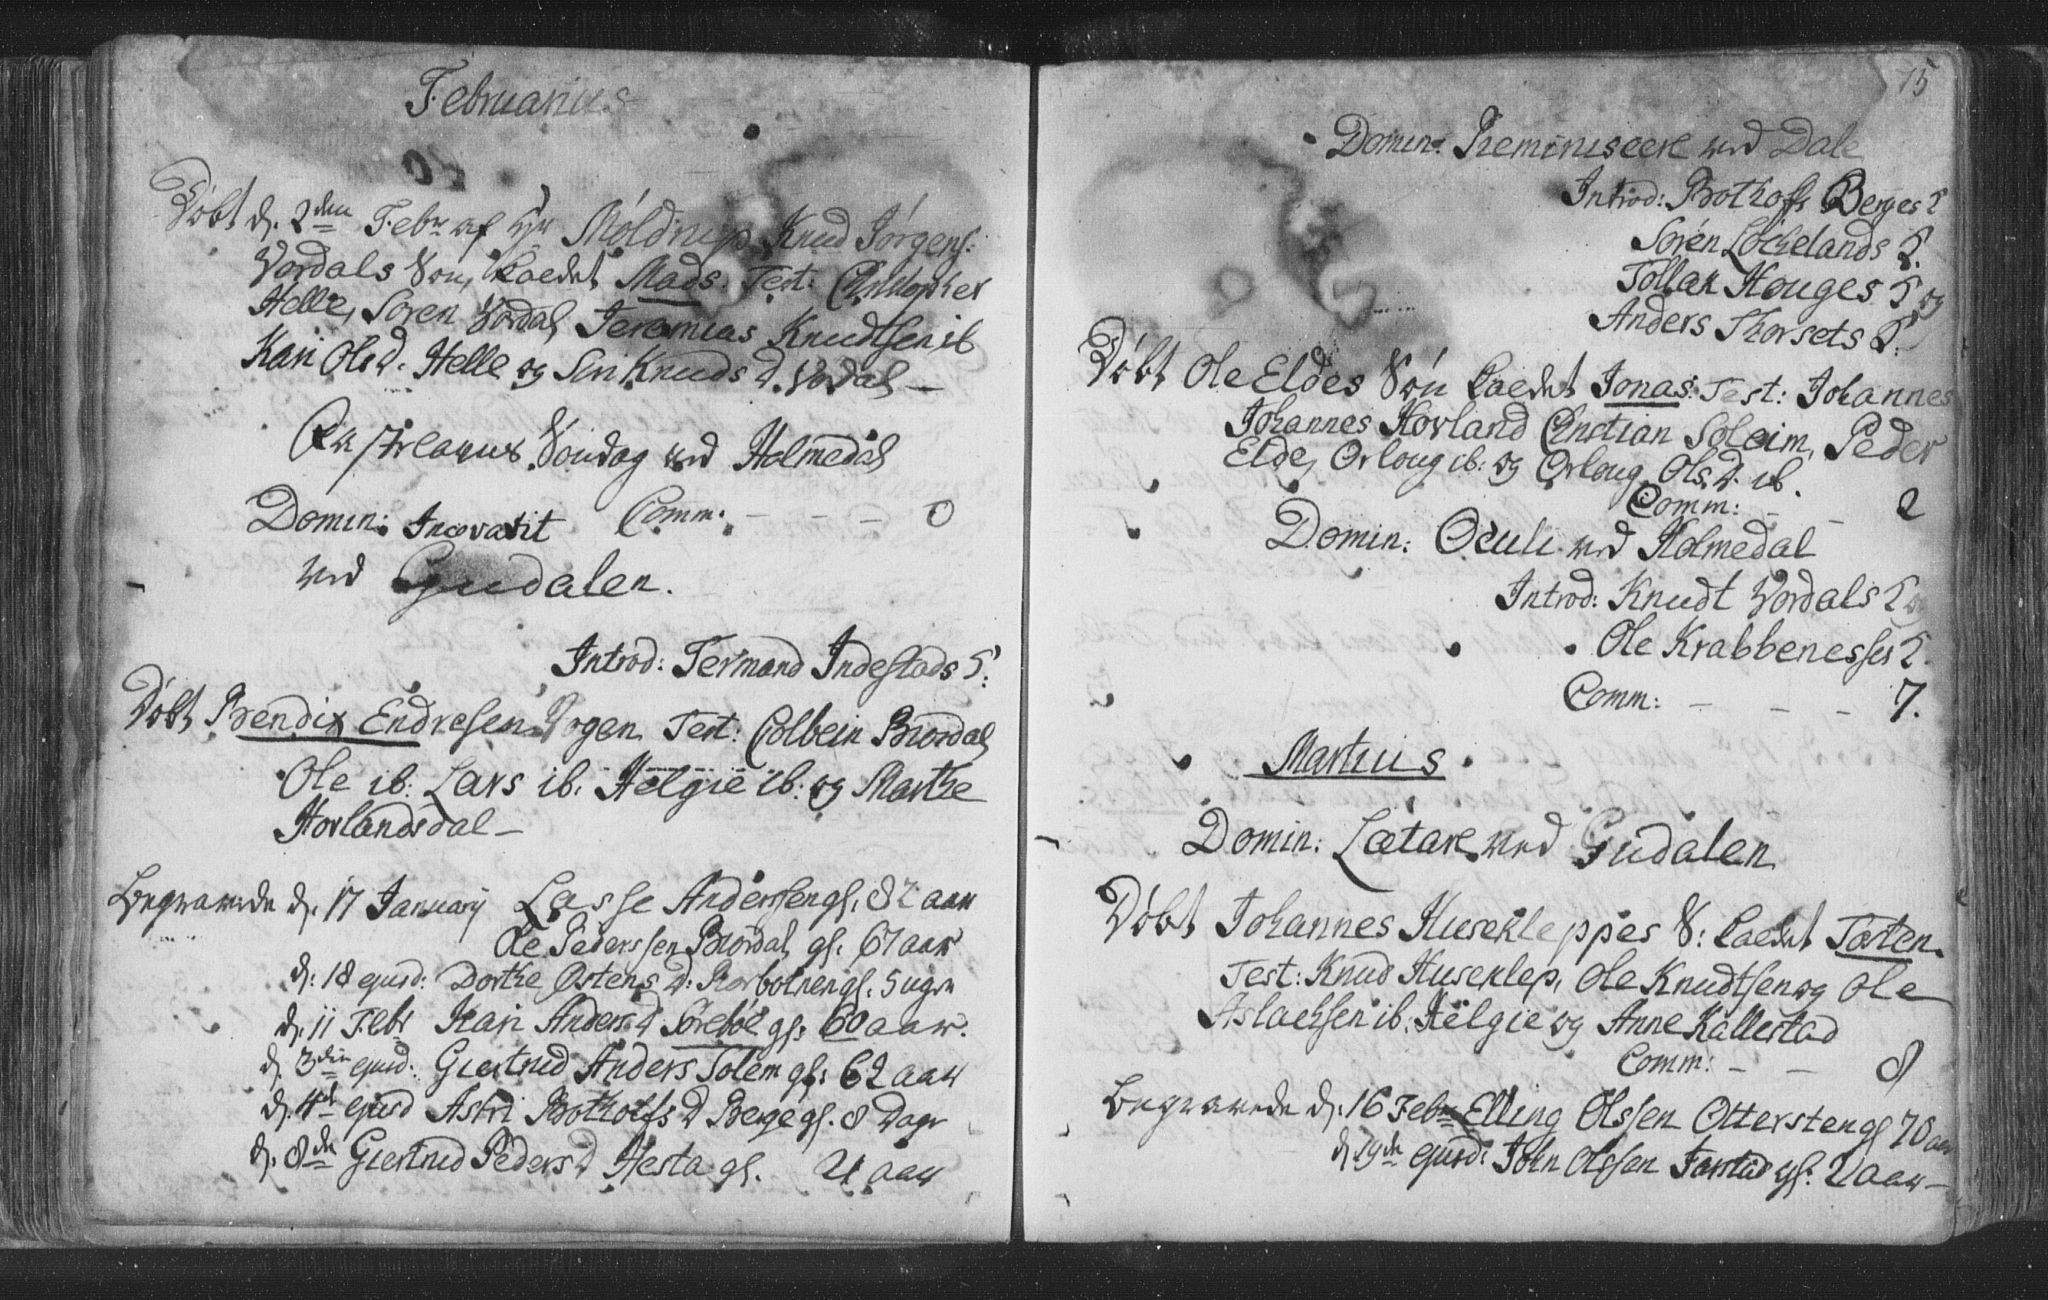 Februarius
Døbt d. 2den Febr af Hr Møldrup Knud Jørgens:
Vordals Søn, kaldet Mads. Test: Christopher
Helle, Søren Vordal, Jeremias Knudtsen ib
Kari Olsd. Helle og Siri Knuds d. Vordal –
Søndag ved Holmedal
Comm: – – – 0
Domin: Invocavit
ved Gudalen.
Introd: Termand Indestads
Døbt Bendix Endresen Test: Colbein Biørdal
Ole ib: Lars ib: Helgie ib: og Marthe
Hovlandsdal –
Begravede d. 17 January Lasse Anderssen gl. 82 aar
Ole Pederssen Biørdal gl. 67 aar
d: 18 ejusd: Dorthe Østens d: gl. 5 uger
d. 11 Febr Kari Anders d Sørebøe gl: 60 aar.
d. 3die ejusd: Giertrud Anders Solem gl: 62 aar
d. 4de ejusd Astri Botholfs d Berge gl. 8 Dage
d. 8de Giertrud Peders d Hesta gl. 21 aar
75
Domin: Reminiscere ved Dale
Introd: Botholfs Berges
Søren Lochelands
Tollak Houges og
Anders Thorsets
Døbt Ole Eldes Søn kaldet Jonas: Test: Johannes
Johannes Hovland Christian Soleim, Peder
Elde, Orloug ib: og Orloug Ols d. ib.
Comm: – – 2
Domin: Oculi ved Holmedal
Introd: Knudt Vordals
Ole Krabbenesses
Comm: – – – 7.
Martius
Domin: Lætare ved Gudalen
Døbt Johannes Husekleppes S: kaldet Torsten.
Test: Knud Huseklep, Ole Knudtsen og Ole
Aslachsen ib: Helgie og Anne Kallestad
Comm: – – 8
Begravede d. 16 Febr Elling Olssen Ottersten gl 70 aar
d. 19de ejusd: John Olssen gl: 2 aar –